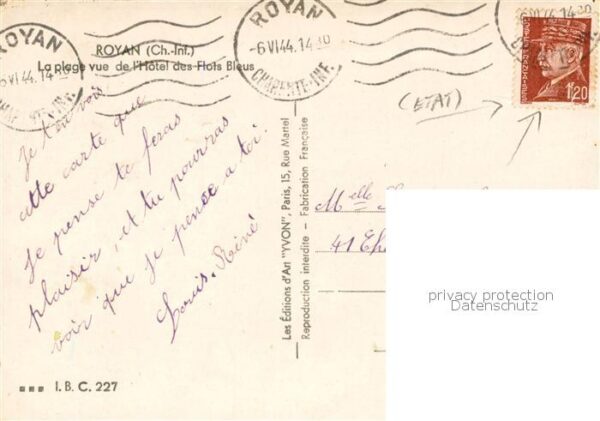 ROYAN
6 VI 44. 14 30
ROYAN
-6 VI 44. 14 30
CHARENTE-INF.
ROYAN (Ch.-Inf.)
La plage vue de l'Hôtel des Flots Bleus
Je t'en vois
cette carte que
je pense te feras
plaisir, et tu pourras
voir que je pense a toi.
Louis. Réné
I. B. C. 227
Les Éditions d'Art "YVON", Paris, 15, Rue Martel
Reproduction interdite - Fabrication Française
(ETAT)
1F20
Melle
41
privacy protection
Datenschutz